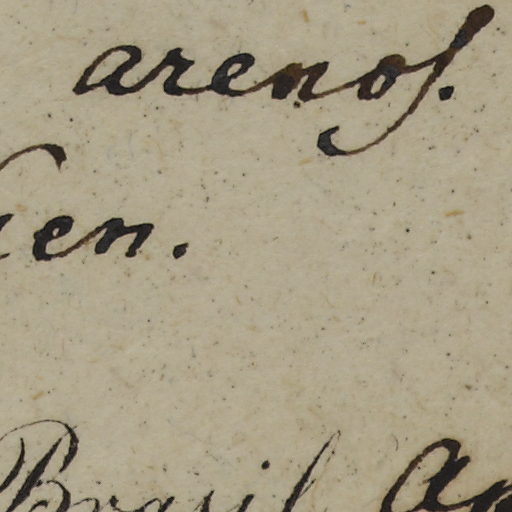 arenoſ.
en.
Brasil